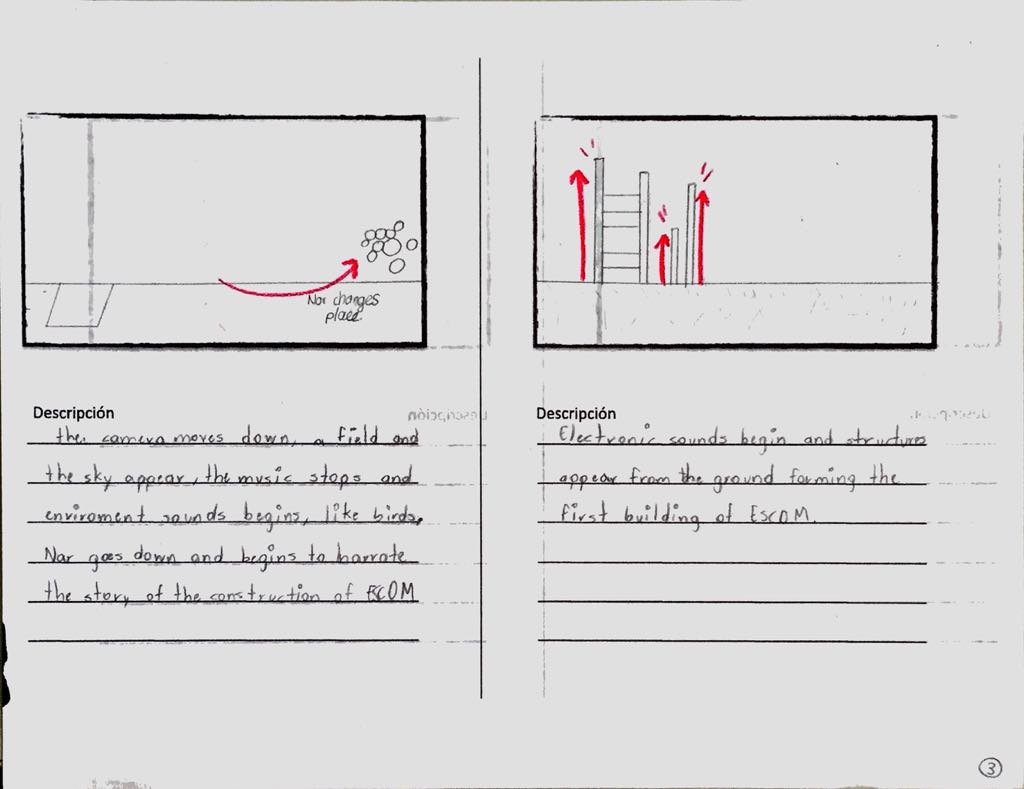 Nar changes
place.
Descripción
the camera moves down, a field and
the sky appear, the music stops and
enviroment sounds begins, like birds.
Nar goes down and begins to barrate
the story of the construction of ESCOM
Descripción
Electronic sounds begin and structures
appear from the ground forming the
first building of ESCOM.
3